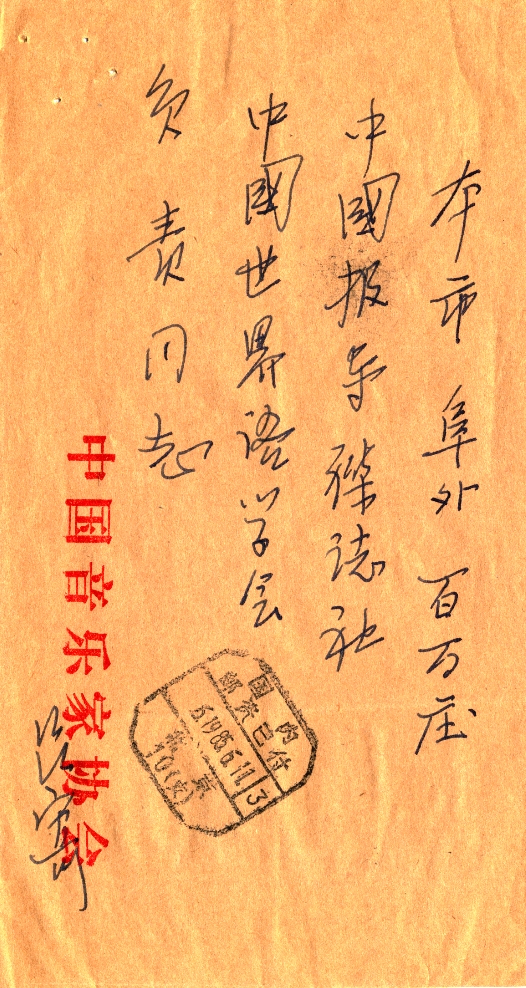 本市阜外百万庄
中國报导襍誌社
中國世界语学会
负责同志
中国音乐家协会
寄
国内
邮资已付
1985.6.11
北京
10(支)